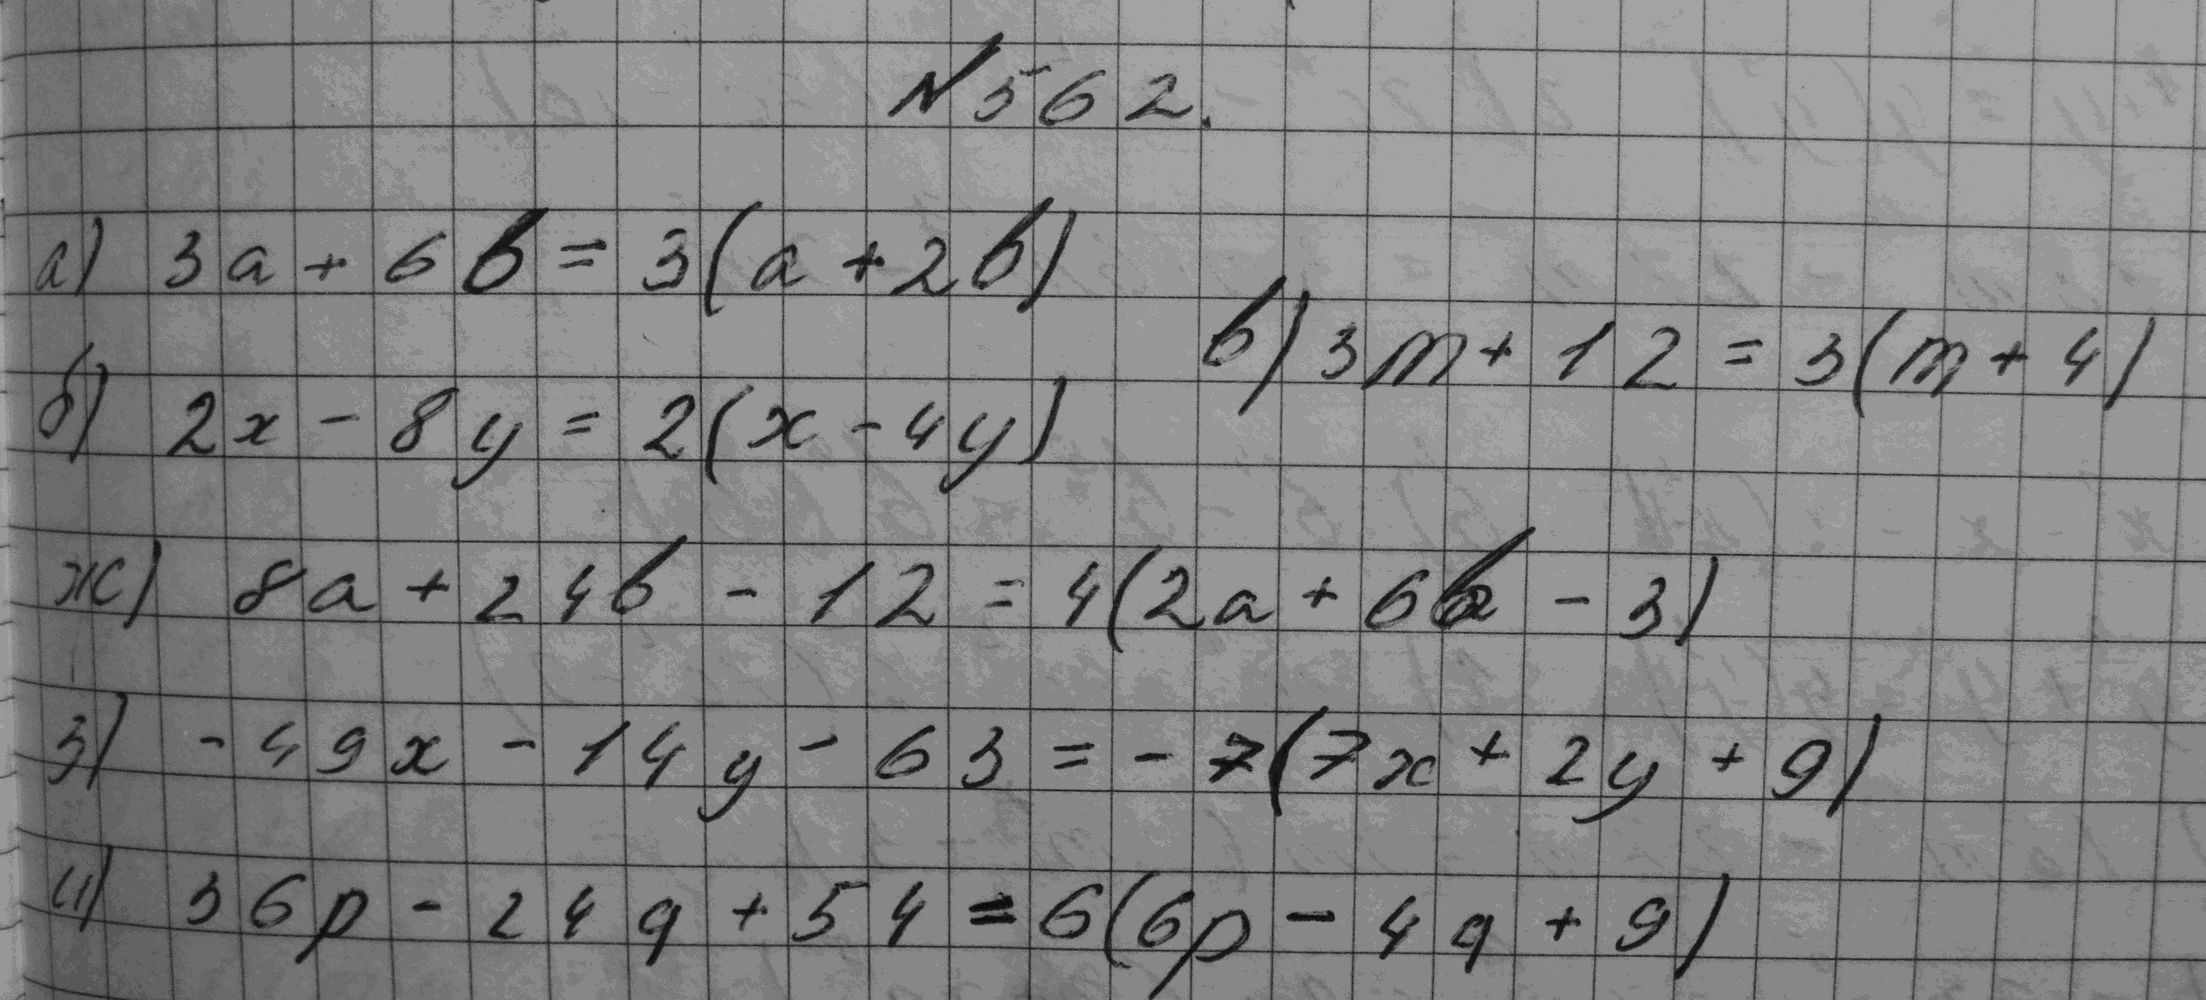 №562.
а) 3a + 6b = 3(a + 2b)
в) 3m + 12 = 3(m + 4)
б) 2x - 8y = 2(x - 4y)
ж) 8a + 24b - 12 = 4(2a + 6b - 3)
з) -49x - 14y - 63 = -7(7x + 2y + 9)
и) 36p - 24q + 54 = 6(6p - 4q + 9)